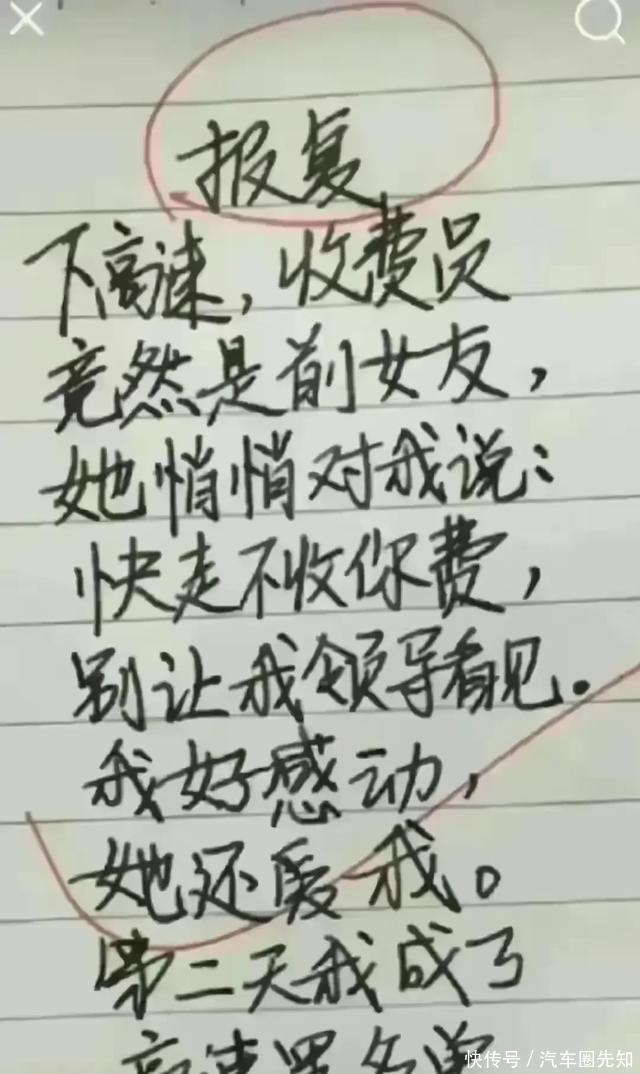 报复
下高速，收费员
竟然是前女友，
她悄悄对我说：
快走不收你费，
别让我领导看见。
我好感动，
她还爱我。
第二天我成了
高速黑名单
快传号／汽车圈先知